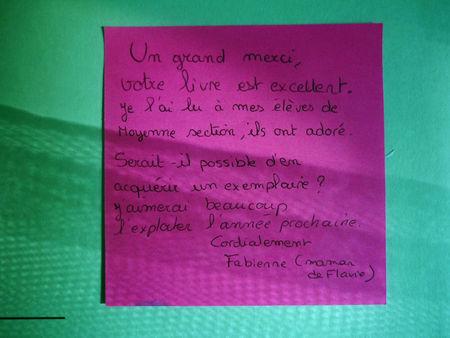 Un grand merci,
votre livre est excellent.
Je l'ai lu à mes élèves de
Moyenne section, ils ont adoré.
Serait-il possible d'en
acquérir un exemplaire ?
J'aimerai beaucoup
l'exploiter l'année prochaine.
Cordialement
Fabienne (maman
de Flavie)